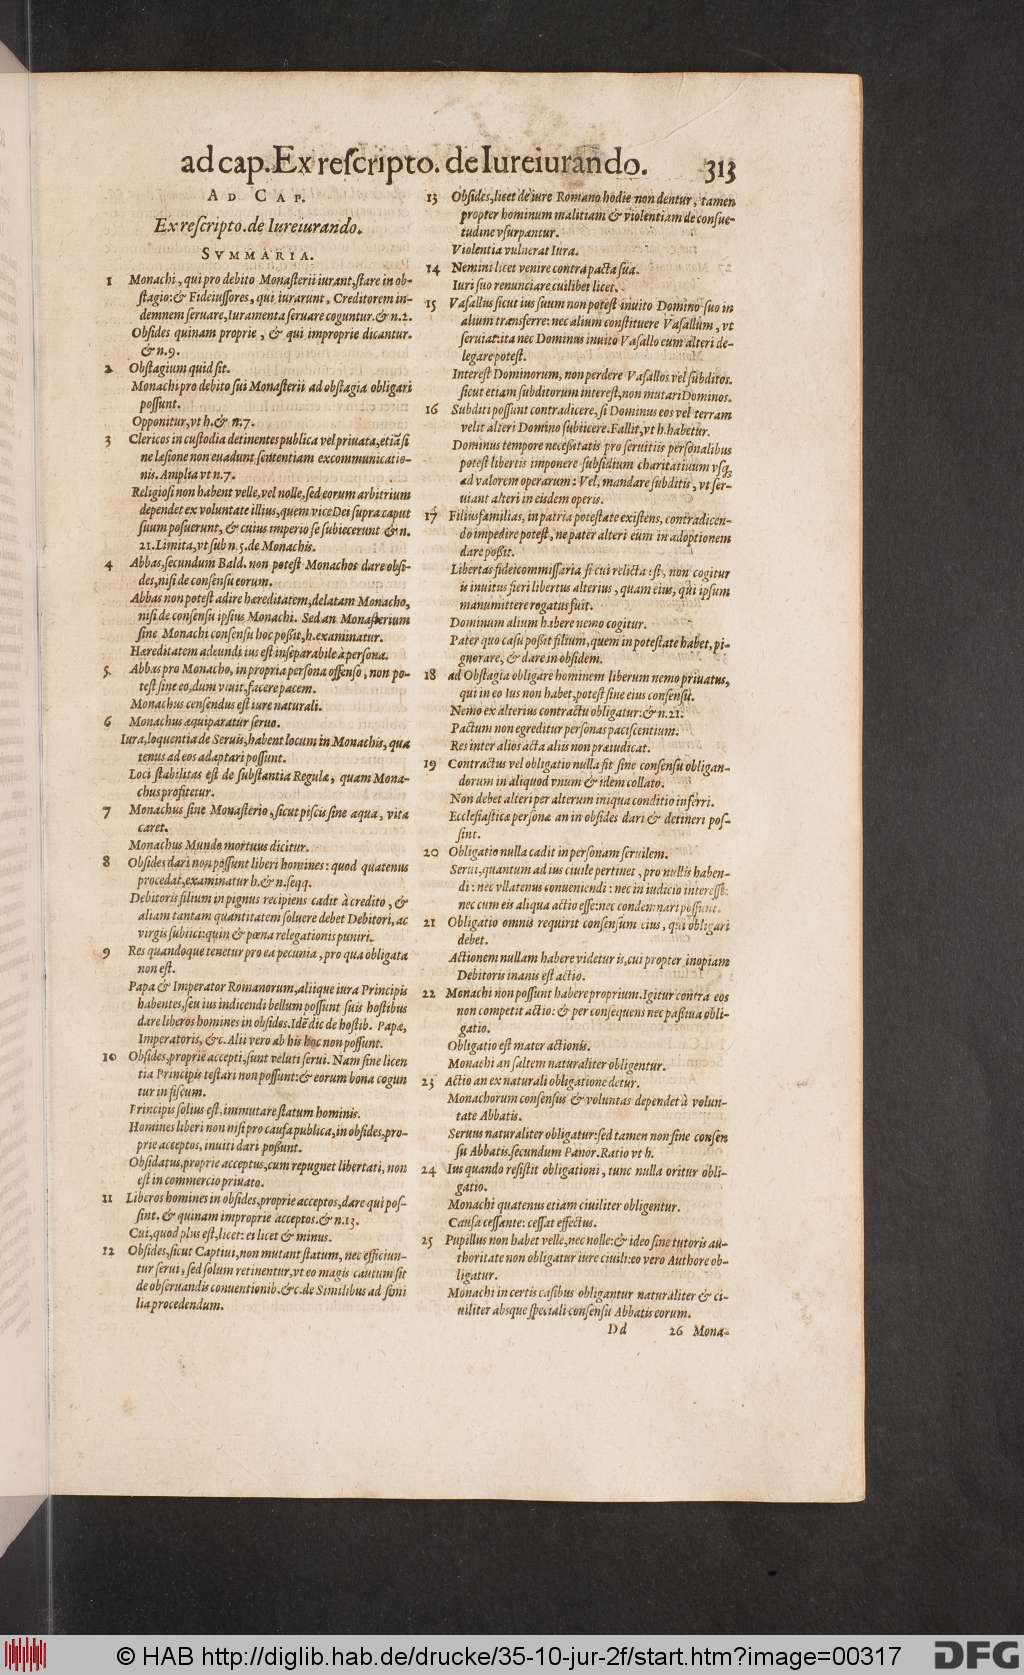 ad cap. Ex rescripto. de Iureiurando. 313
AD CAP.
Ex rescripto. de Iureiurando.
SVMMARIA.
1 Monachi, qui pro debito Monasterii iurant, stare in ob-
stagio: & Fideiussores, qui iurarunt, Creditorem in-
demnem servare, Iuramenta servare coguntur. & n.2.
Obsides quinam proprie, & qui improprie dicantur.
& n.9.
2 Obstagium quid sit.
Monachi pro debito sui Monasterii ad obstagia obligari
possunt.
Opponitur, vt h. & n.7.
3 Clericos in custodia detinentes publica vel privata, etiã si
ne læsione non evadunt sententiam excommunicatio-
nis. Amplia vt n.7.
Religiosi non habent velle, vel nolle, sed eorum arbitrium
dependet ex voluntate illius, quem vice Dei supra caput
suum posuerunt, & cuius imperio se subiecerunt & n.
21. Limita, vt sub n.5. de Monachis.
4 Abbas, secundum Bald. non potest Monachos dare obsi-
des, nisi de consensu eorum.
Abbas non potest adire hæreditatem, delatam Monacho,
nisi de consensu ipsius Monachi. Sed an Monasterium
sine Monachi consensu hoc poßit, h. examinatur.
Hæreditatem adeundi ius est inseparabile à persona.
5. Abbas pro Monacho, in propria persona offenso, non po-
test sine eo, dum vivit, facere pacem.
Monachus censendus est iure naturali.
6 Monachus æquiparatur servo.
Iura, loquentia de Servis, habent locum in Monachis, qua
tenus ad eos adaptari possunt.
Loci stabilitas est de substantia Regulæ, quam Mona-
chus profitetur.
7 Monachus sine Monasterio, sicut piscis sine aqua, vita
caret.
Monachus Mundo mortuus dicitur.
8 Obsides dari non possunt liberi homines: quod quatenus
procedat, examinatur h. & n. seqq.
Debitoris filium in pignus recipiens cadit à credito, &
aliam tantam quantitatem solvere debet Debitori, ac
virgis subiici: quin & pœna relegationis puniri.
9 Res quandoque tenetur pro ea pecunia, pro qua obligata
non est.
Papa & Imperator Romanorum, aliique iura Principis
habentes, seu ius indicendi bellum possunt suis hostibus
dare liberos homines in obsides. Idẽ dic de hostib. Papæ,
Imperatoris, &c. Alii vero ab his hoc non possunt.
10 Obsides, proprie accepti, sunt veluti servi. Nam sine licen
tia Principis testari non possunt: & eorum bona cogun
tur in fiscum.
Principis solius est, immutare statum hominis.
Homines liberi non nisi pro causa publica, in obsides, pro-
prie acceptos, inviti dari possunt.
Obsidatus, proprie acceptus, cum repugnet libertati, non
est in commercio privato.
11 Liberos homines in obsides, proprie acceptos, dare qui pos-
sint. & quinam improprie acceptos. & n.13.
Cui, quod plus est, licet: ei licet & minus.
12 Obsides, sicut Captivi, non mutant statum, nec efficiun-
tur servi, sed solum retinentur, vt eo magis cautum sit
de observandis conventionib. &c. de Similibus ad simi
lia procedendum.
13 Obsides, licet de iure Romano hodie non dentur, tamen
propter hominum malitiam & violentiam de consue-
tudine vsurpantur.
Violentia vulnerat Iura.
14 Nemini licet venire contra pacta sua.
Iuri suo renunciare cuilibet licet.
15 Vasallus sicut ius suum non potest invito Domino suo in
alium transferre: nec alium constituere Vasallum, vt
serviat: ita nec Dominus invito Vasallo eum alteri de-
legare potest.
Interest Dominorum, non perdere Vasallos vel subditos.
sicut etiam subditorum interest, non mutari Dominos.
16 Subditi possunt contradicere, si Dominus eos vel terram
velit alteri Domino subiicere. Fallit, vt h. habetur.
Dominus tempore necessitatis pro servitiis personalibus
potest libertis imponere subsidium charitativum vsq;
ad valorem operarum: Vel, mandare subditis, vt ser-
viant alteri in eisdem operis.
17 Filiusfamilias, in patria potestate existens, contradicen-
do impedire potest, ne pater alteri eum in adoptionem
dare poßit.
Libertas fideicommissaria si cui relicta est, non cogitur
is invitus fieri libertus alterius, quam eius, qui ipsum
manumittere rogatus fuit.
Dominum alium habere nemo cogitur.
Pater quo casu poßit filium, quem in potestate habet, pi-
gnorare, & dare in obsidem.
18 ad Obstagia obligare hominem liberum nemo privatus,
qui in eo Ius non habet, potest sine eius consensu.
Nemo ex alterius contractu obligatur: & n.21.
Pactum non egreditur personas paciscentium.
Res inter alios acta aliis non præiudicat.
19 Contractus vel obligatio nulla fit sine consensu obligan-
dorum in aliquod vnum & idem collato.
Non debet alteri per alterum iniqua conditio inferri.
Ecclesiasticæ personæ an in obsides dari & detineri pos-
sint.
20 Obligatio nulla cadit in personam servilem.
Servi, quantum ad ius civile pertinet, pro nullis haben-
di: nec vllatenus conveniendi: nec in iudicio interesse:
nec cum eis aliqua actio esse: nec condemnari possunt.
21 Obligatio omnis requirit consensum eius, qui obligari
debet.
Actionem nullam habere videtur is, cui propter inopiam
Debitoris inanis est actio.
22 Monachi non possunt habere proprium. Igitur contra eos
non competit actio: & per consequens nec passiva obli-
gatio.
Obligatio est mater actionis.
Monachi an saltem naturaliter obligentur.
23 Actio an ex naturali obligatione detur.
Monachorum consensus & voluntas dependet à volun-
tate Abbatis.
Servus naturaliter obligatur: sed tamen non sine consen
su Abbatis, secundum Panor. Ratio vt h.
24 Ius quando resistit obligationi, tunc nulla oritur obli-
gatio.
Monachi quatenus etiam civiliter obligentur.
Causa cessante: cessat effectus.
25 Pupillus non habet velle, nec nolle: & ideo sine tutoris au-
thoritate non obligatur iure civili: eo vero Authore ob-
ligatur.
Monachi in certis casibus obligantur naturaliter & ci-
viliter absque speciali consensu Abbatis eorum.
Dd 26 Mona-
© HAB http://diglib.hab.de/drucke/35-10-jur-2f/start.htm?image=00317
DFG